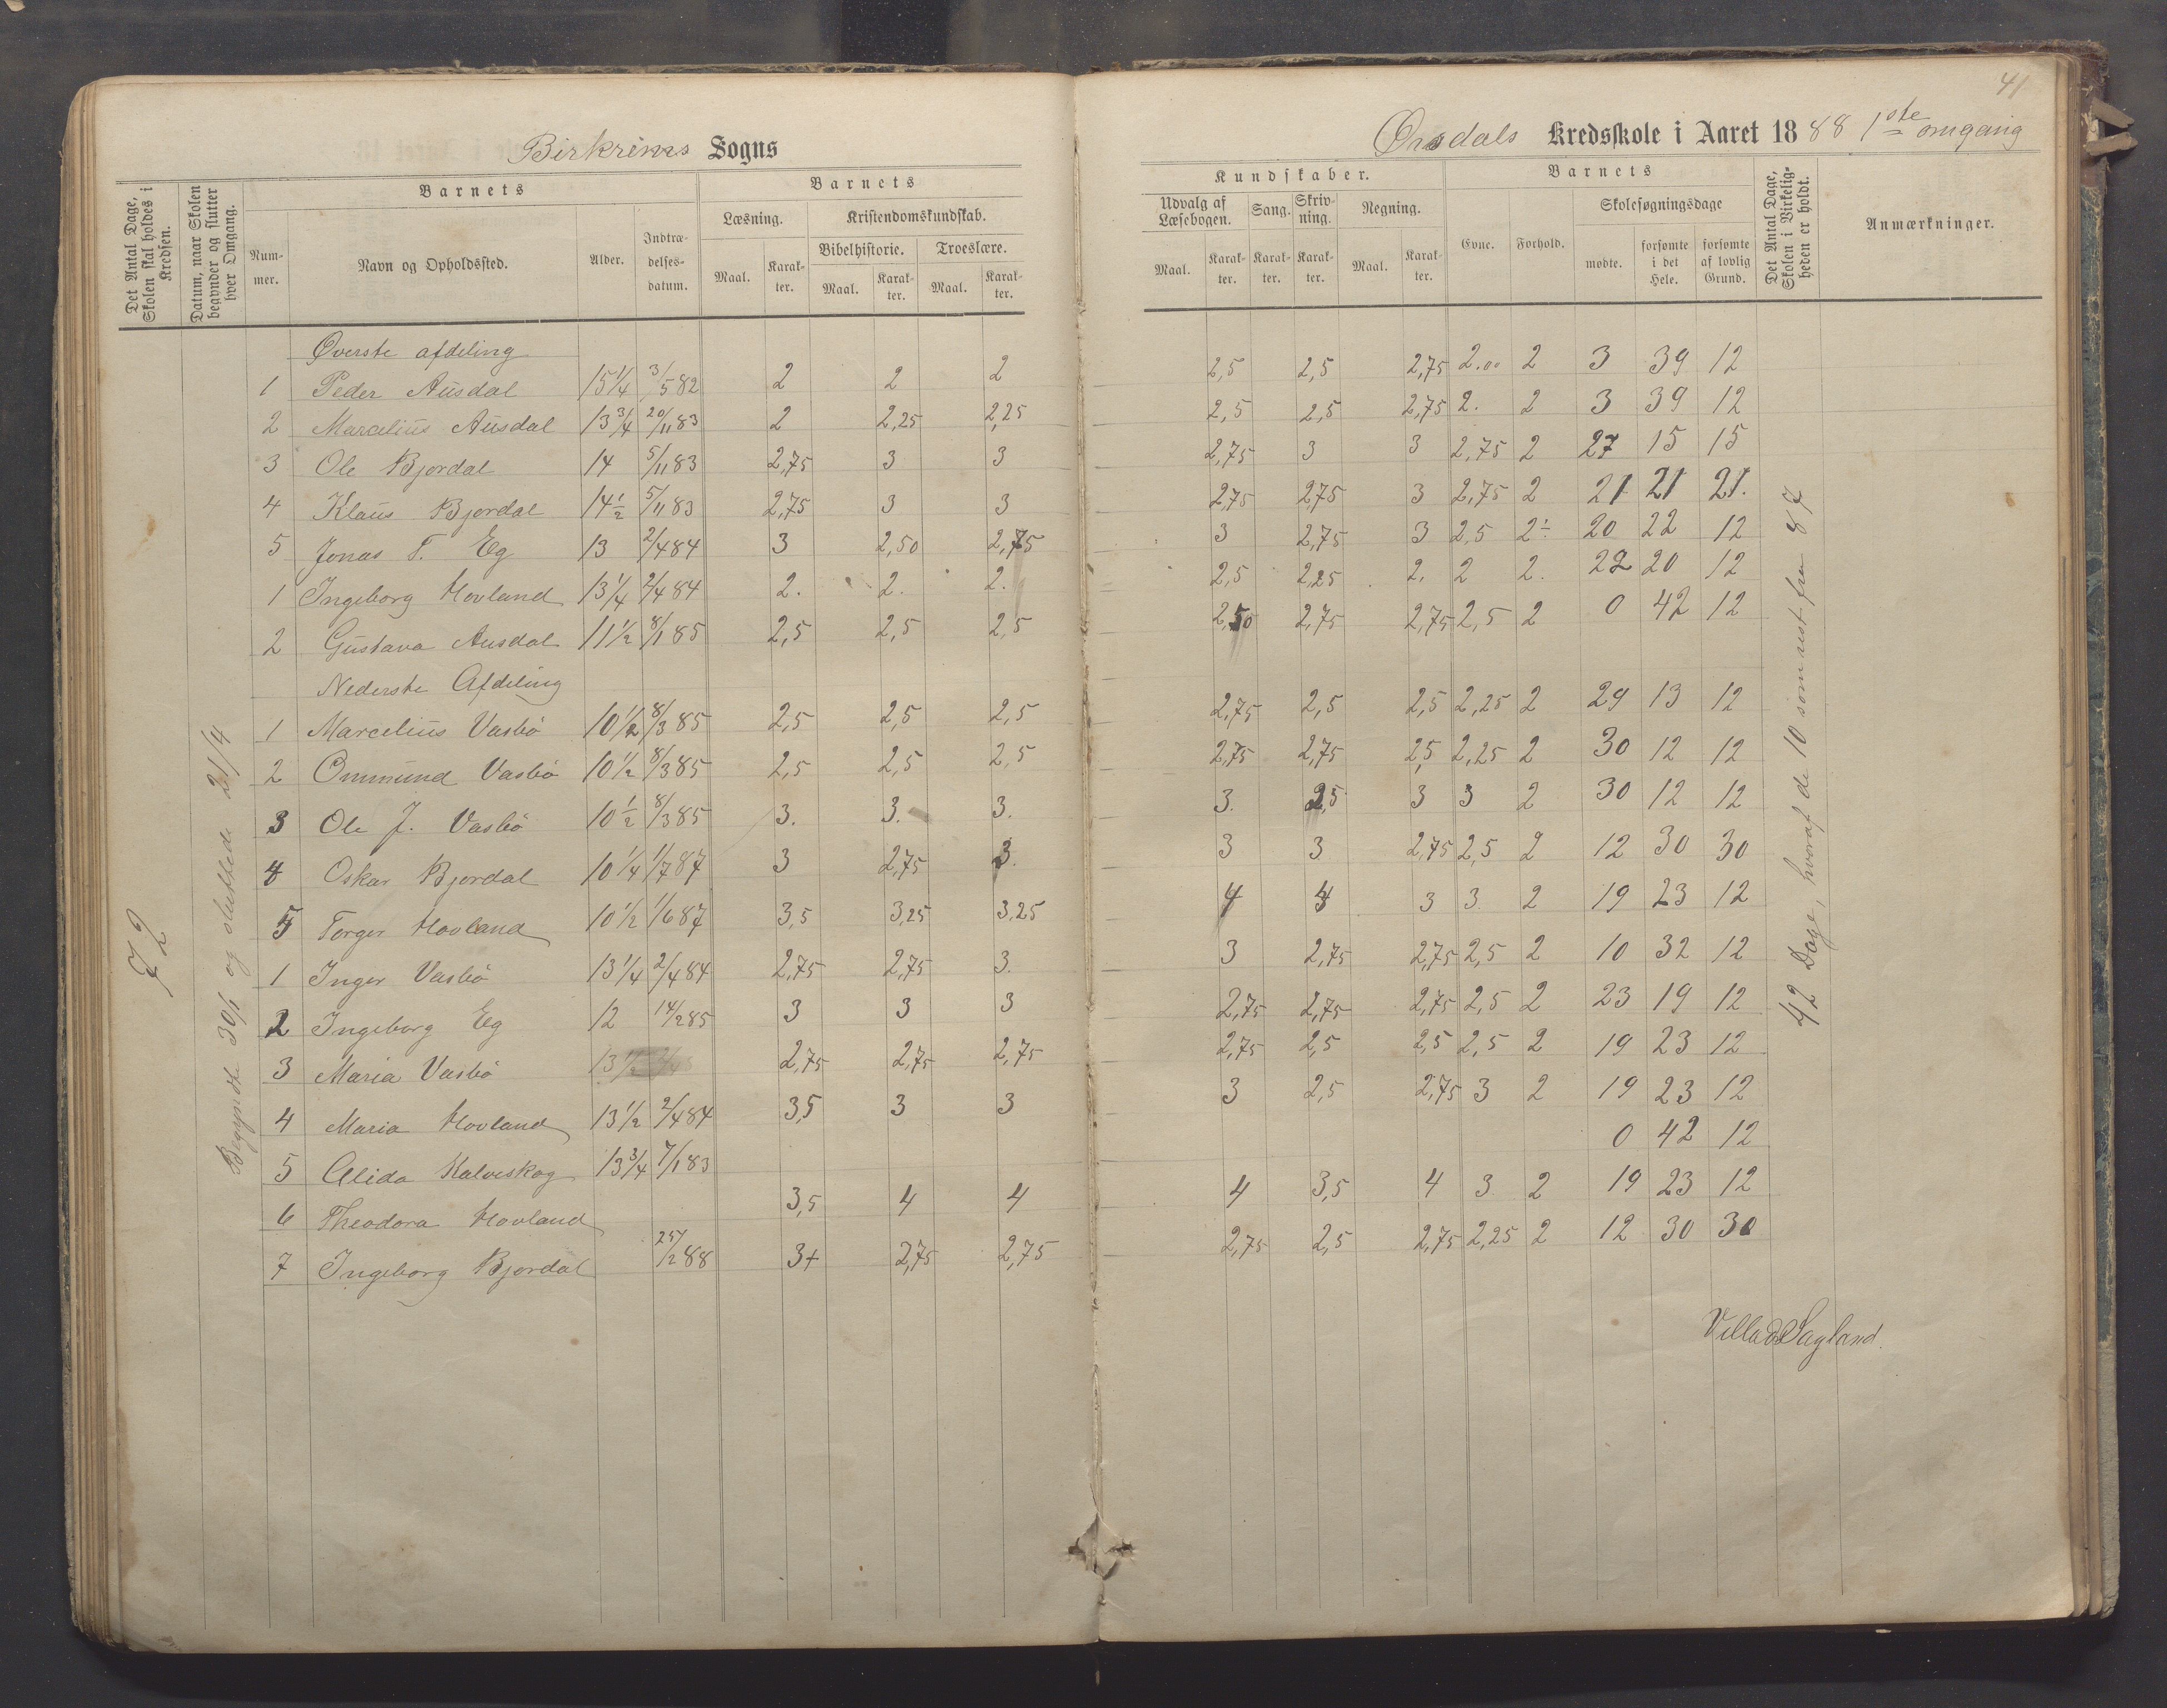 41
Birkrems Sogns
Ørsdals Kredsskole i Aaret 1888 1ste omgang
Det Antal Dage, Skolen skal holdes i Kredsen.
Datum, naar Skolen begynder og slutter hver Omgang.
Barnets
Nummer.
Navn og Opholdssted.
Alder.
Indtrædelsesdatum.
Barnets
Læsning.
Maal.
Karakter.
Kristendomskundskab.
Bibelhistorie.
Maal.
Karakter.
Troeslære.
Maal.
Karakter.
Kundskaber.
Udvalg af Læsebogen.
Maal.
Karakter.
Sang.
Karakter.
Skrivning.
Karakter.
Regning.
Maal.
Karakter.
Barnets
Evne.
Forhold.
Skolesøgningsdage
mødte.
forsømte i det Hele.
forsømte af lovlig Grund.
Det Antal Dage, Skolen i Virkeligheden er holdt.
Anmærkninger.
72
Begyndte 30/1 og sluttede 21/4
Øverste afdeling
1 Peder Ausdal 15 1/4 3/5 82 2 2 2 2,5 2,5 2,75 2.00 2 3 39 12
2 Marcelius Ausdal 13 3/4 20/11 83 2 2,25 2,25 2,5 2,5 2,75 2. 2 3 39 12
3 Ole Bjordal 14 5/11 83 2,75 3 3 2,75 3 3 2,75 2 27 15 15
4 Klaus Bjordal 14 1/2 5/11 83 2,75 3 3 2,75 2,75 3 2,75 2 21 21 21.
5 Jonas T. Eg 13 2/4 84 3 2,50 2,75 3 2,75 3 2,5 2÷ 20 22 12
1 Ingeborg Hovland 13 1/4 2/4 84 2. 2. 2. 2,5 2,25 2. 2 2. 22 20 12
2 Gustava Ausdal 11 1/2 8/1 85 2,5 2,5 2,5 2,50 2,75 2,75 2,5 2 0 42 12
Nederste Afdeling
1 Marcelius Vasbø 10 1/2 8/3 85 2,5 2,5 2,5 2,75 2,5 2,5 2,25 2 29 13 12
2 Ommund Vasbø 10 1/2 8/3 85 2,5 2,5 2,5 2,75 2,75 2,5 2,25 2 30 12 12
3 Ole J. Vasbø 10 1/2 8/3 85 3. 3. 3. 3. 2,5 3 3 2 30 12 12
4 Oskar Bjordal 10 1/4 1/7 87 3 2,75 3. 3 3 2,75 2,5 2 12 30 30
5 Torger Hovland 10 1/2 1/6 87 3,5 3,25 3,25 4 4 3 3. 2 19 23 12
1 Inger Vasbø 13 1/4 2/4 84 2,75 2,75 3. 3 2,75 2,75 2,5 2 10 32 12
2 Ingeborg Eg 12 14/2 85 3 3 3 2,75 2,75 2,75 2,5 2 23 19 12
3 Maria Vasbø 13 1/2 2,75 2,75 2,75 2,75 2,5 2,5 2,5 2 19 23 12
4 Maria Hovland 13 1/2 2/4 84 3,5 3 3 3 2,5 2,75 3 2 19 23 12
5 Alida Kalveskog 13 3/4 7/1 83 0 42 12
6 Theodora Hovland 3,5 4 4 4 3,5 4 3 2 19 23 12
7 Ingeborg Bjordal 25/2 88 3+ 2,75 2,75 2,75 2,5 2,75 2,25 2 12 30 30
42 Dage, hvoraf de 10 som rest fra 87
Villads Sagland.